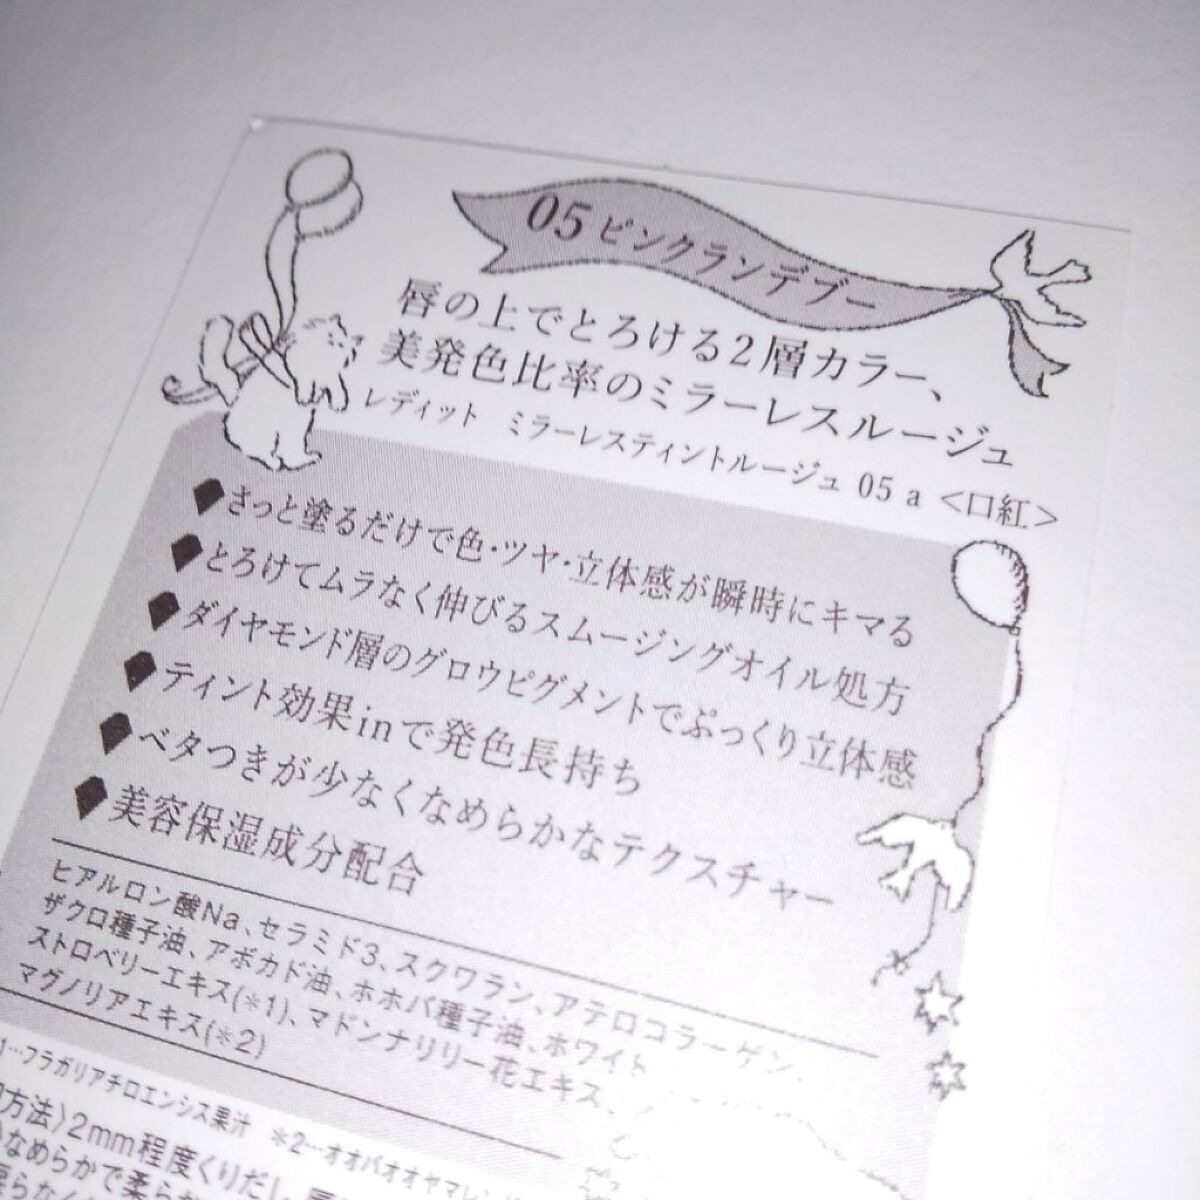 05 ピンクランデブー
唇の上でとろける2層カラー、
美発色比率のミラーレスルージュ
レディット ミラーレスティントルージュ 05 a <口紅>
◆さっと塗るだけで色・ツヤ・立体感が瞬時にキマる
◆とろけてムラなく伸びるスムージングオイル処方
◆ダイヤモンド層のグロウピグメントでぷっくり立体感
◆ティント効果inで発色長持ち
◆ベタつきが少なくなめらかなテクスチャー
◆美容保湿成分配合
ヒアルロン酸Na、セラミド3、スクワラン、アテロコラーゲン、
ザクロ種子油、アボカド油、ホホバ種子油、ホワイト
ストロベリーエキス(*1)、マドンナリリー花エキス、
マグノリアエキス(*2)
1…フラガリアチロエンシス果汁 *2…オオバオオヤマレン
方法〉2mm程度くりだし、唇
なめらかで柔らか